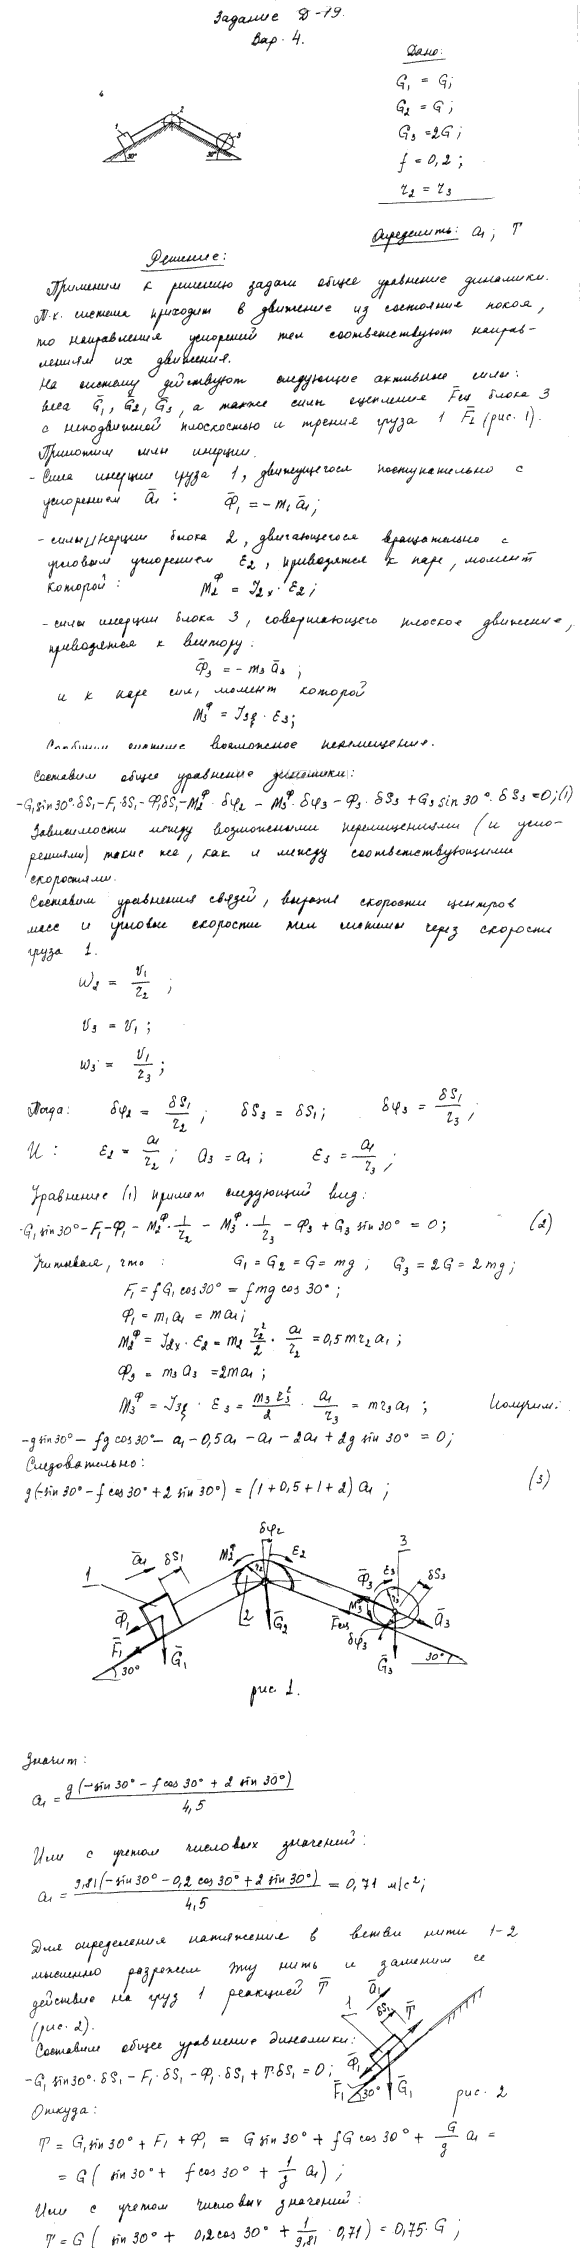 Задание Д-19.
Вар. 4.
Дано:
G₁ = G;
G₂ = G;
G₃ = 2G;
f = 0,2;
r₂ = r₃
4
1 2 3
30° 30°
Определить: a₁; T
Решение:
Применим к решению задачи общее уравнение динамики.
Т.к. система приходит в движение из состояние покоя,
то направления ускорений тел соответствуют направ-
лениям их движения.
На систему действуют следующие активные силы:
веса G̅₁, G̅₂, G̅₃, а также силы сцепления F̅сц блока 3
с неподвижной плоскостью и трения груза 1 F̅₁ (рис. 1).
Приложим силы инерции.
- Сила инерции груза 1, движущегося поступательно с
ускорением a̅₁ : Φ̅₁ = - m₁ a̅₁;
- силы инерции блока 2, двигающегося вращательно с
угловым ускорением ε₂, приводятся к паре, момент
которой: M₂ᶲ = J₂ₓ · ε₂;
- силы инерции блока 3, совершающего плоское движение,
приводятся к вектору:
Φ̅₃ = - m₃ a̅₃ ;
и к паре сил, момент которой
M₃ᶲ = J₃ξ · ε₃;
Сообщим системе возможное перемещение.
Составим общее уравнение динамики:
-G₁ sin30°·δS₁ - F₁·δS₁ - Φ₁δS₁ - M₂ᶲ·δφ₂ - M₃ᶲ·δφ₃ - Φ₃·δS₃ + G₃ sin30°·δS₃ = 0; (1)
Зависимости между возможными перемещениями (и уско-
рениями) такие же, как и между соответствующими
скоростями.
Составим уравнения связей, выразив скорости центров
масс и угловые скорости тел системы через скорости
груза 1.
ω₂ = v₁/r₂ ;
v₃ = v₁ ;
ω₃ = v₁/r₃ ;
Тогда: δφ₂ = δS₁/r₂ ; δS₃ = δS₁; δφ₃ = δS₁/r₃ ;
И : ε₂ = a₁/r₂ ; a₃ = a₁ ; ε₃ = a₁/r₃ ;
Уравнение (1) примет следующий вид:
-G₁ sin30° - F₁ - Φ₁ - M₂ᶲ · 1/r₂ - M₃ᶲ · 1/r₃ - Φ₃ + G₃ sin30° = 0; (2)
Учитывая, что : G₁ = G₂ = G = mg ; G₃ = 2G = 2mg;
F₁ = fG₁ cos30° = fmg cos 30° ;
Φ₁ = m₁a₁ = ma₁;
M₂ᶲ = J₂ₓ · ε₂ = m₂ r₂²/2 · a₁/r₂ = 0,5mr₂a₁ ;
Φ₃ = m₃a₃ = 2ma₁ ;
M₃ᶲ = J₃ξ · ε₃ = m₃r₃²/2 · a₁/r₃ = mr₃a₁ ; Получим:
-g sin30° - fg cos30° - a₁ - 0,5a₁ - a₁ - 2a₁ + 2g sin30° = 0;
Следовательно:
g(-sin30° - f cos30° + 2 sin30°) = (1 + 0,5 + 1 + 2) a₁ ; (3)
1 a̅₁ δS₁ M₂ᶲ δφ₂ ε₂ r₂ 2 3 Φ̅₃ ε₃ r₃ δS₃
Φ̅₁ F̅₁ G̅₁ G̅₂ F̅сц M₃ᶲ δφ₃ a̅₃ G̅₃
30° 30°
рис. 1.
Значит:
a₁ = g(-sin30° - f cos30° + 2 sin30°)/4,5
Или с учетом числовых значений:
a₁ = 9,81(-sin30° - 0,2 cos30° + 2 sin30°)/4,5 = 0,71 м/с²;
Для определения натяжения в ветви нити 1-2
мысленно разрежем эту нить и заменим ее
действие на груз 1 реакцией T̅
(рис. 2).
Составим общее уравнение динамики:
-G₁ sin30°·δS₁ - F₁·δS₁ - Φ₁·δS₁ + T·δS₁ = 0;
1 a̅₁ δS₁ T̅ Φ̅₁ F̅₁ 30° G̅₁
рис. 2
Откуда:
T = G₁sin30° + F₁ + Φ₁ = G sin30° + fG cos30° + G/g a₁ =
= G( sin30° + f cos30° + 1/g a₁) ;
Или с учетом числовых значений:
T = G ( sin30° + 0,2cos30° + 1/9,81 · 0,71) = 0,75·G ;